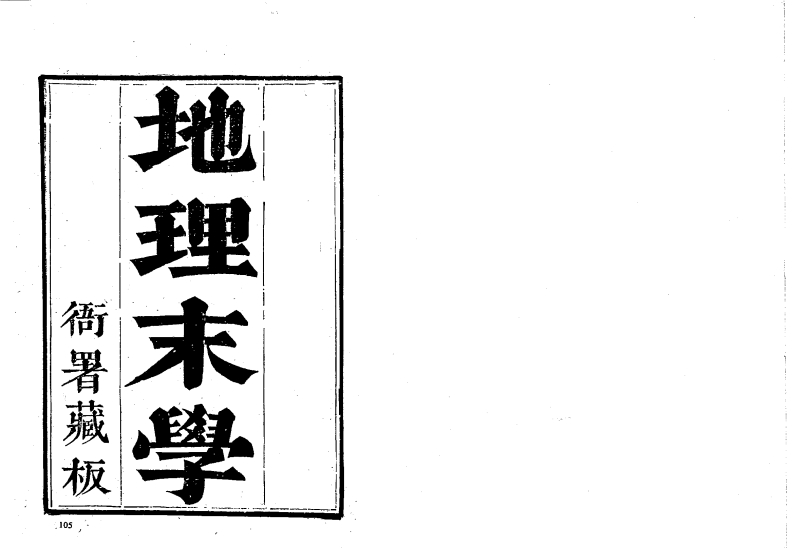 地理末學
衙署藏板
105